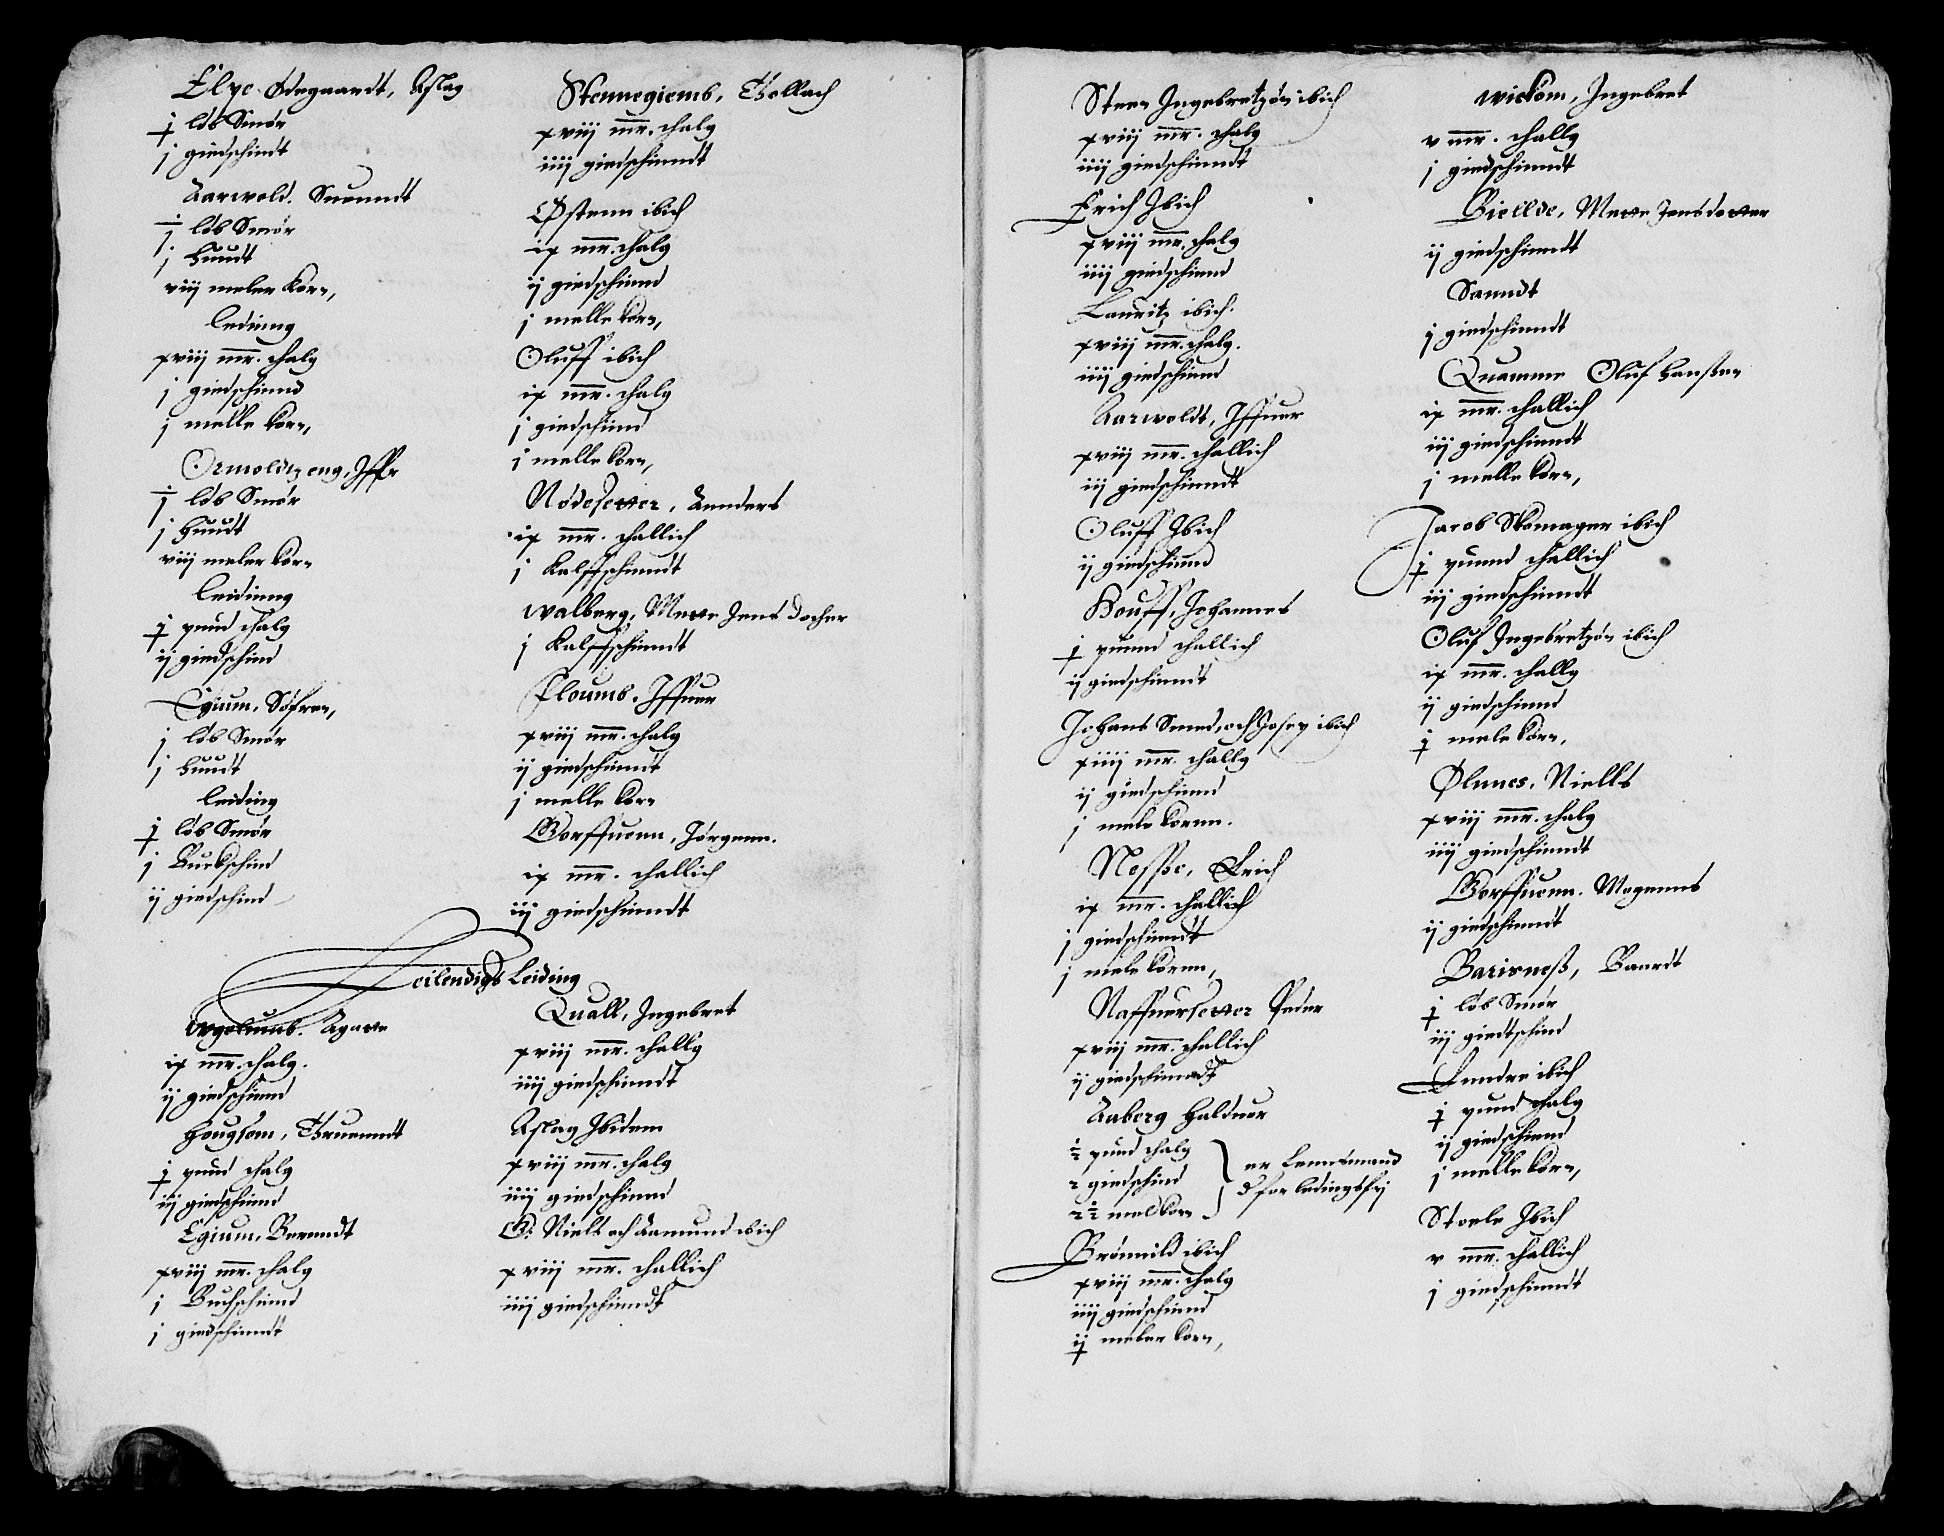 Elpe Ødegaardt, Aslag
j̶ løb Smør
j giedschindt
Aarwold. Suenndt
j̶ løb Smør
j Huudt
viij meler korn,
ledinng
xviij mr. thalg
j giedschinnd
j melle korn,
Ormoldtz eng, Iffr
j̶ løb Smør
j Huudt
viij meler korn
leidinng
j̶ pund thalg
ij giedschind
Egium, Søfren,
j løb Smør
j Huudt
leiding
j̶ løb Smør
j Buckschind
ij giedschind
Stennegiemb, Thollach
xviij mr. thalg
iiij giedschinndt
Østenn ibid
ix mr. thalg
ij giedschinnd
j melle korn,
Oluff ibid
ix mr. thalg
j giedschinnd
j melle korn,
Nødesetter, Annders
ix mr. thallich
j Kalffschinndt
Walberg, Mette Jens Dother
j Kalffschinndt
Ploumb, Iffuer
xviij mr. thalg
ij giedschinndt
j melle korn
Gorffuenn, Jørgenn.
ix mr. thallich
iij giedschinndt
Leilendigs Leiding
Agatte
ix mr. thalg.
ij giedschinnd
Hougsom, Thruenndt
j̶ pund thalg
iij giedschinnd
Egium, Berenndt
xviij mr. thalg
j Buchschinnd
j giedschinndt
Quall, Ingebret
xviij mr. thallg
iiij giedschinndt
Aslag Ibidem
xviij mr. thalg
iiij giedschinnd
G: Niels och Aamund ibid
xviij mr. thallich
iiij giedschinndt
Steen Ingebretzøn ibid
xviij mr. thalg
iiij giedschinndt
Erich Ibid
xviij mr. thalg
iiij giedschinnd
Lauritz ibid.
xviij mr. thalg.
iiij giedschinnd
Aarwoldt, Iffuer
xviij mr. thallich
iij giedschinndt
Oluff Ibid
ij giedschinnd
Houff, Johannes
j̶ puund thallich
ij giedschinndt
Johans Smed, och Josep ibid
xiiij mr. thallg
ij giedschinnd
j mele kornn.
Nesße, Erich
ix mr. thallich
j giedschinndt
j mele kornn,
Naffuersetter Peder
xviij mr. thallich
ij giedschinndt
Aaberg Halduor
½ pund thalg
2 giedschind
2½ mel korn
er Lennsmand
& for ledingsfrj
Brønnild ibid
xviij mr. thalg
iiij giedschinnd
ij̶ meler korn,
Wickom, Ingebret
v mr. thallg
j giedschinndt
Biellde, Mette Jensdotter
ij giedschinndt
Sanndt
j giedschinndt
Quamme Oluf Hanßen
ix mr. thallich
iij giedschinndt
j melle korn,
Jacob Skomager ibid
j̶ puund thallich
iij giedschinndt
Oluf Ingebretzøn ibid
ix mr. thallg
ij giedschinnd
j̶ mele korn,
Ølnnes, Niells
xviij mr. thalg
iiij giedschinndt
Gorffuenn, Mogenns
ij giedschinndt
Barixneß, Baardt
j̶ løb Smør
iij giedtschind
Enndre ibid
j̶ pund thalg
ij giedschinnd
j melle korn,
Steele Ibid
v mr. thallich
j giedschinndt